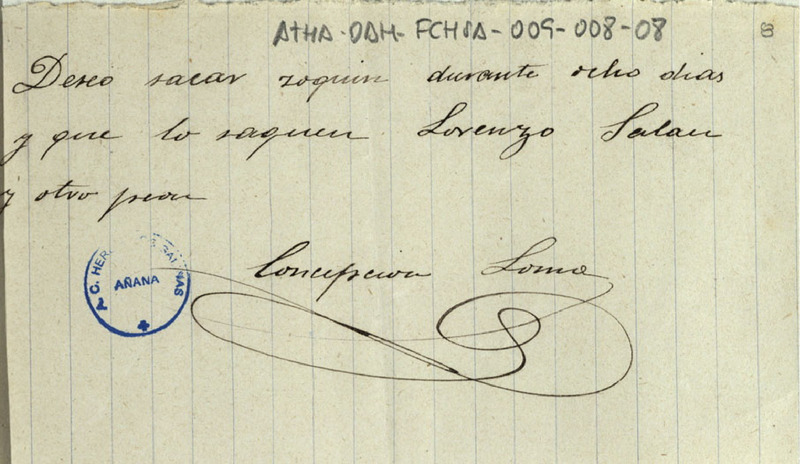 ATHA-DAH-FCHSA-009-008-08
8
Deseo sacar zoquin durante ocho dias
y que lo saquen Lorenzo Salau
y otro peon
Concepcion Loma
C. HER SALINAS
AÑANA